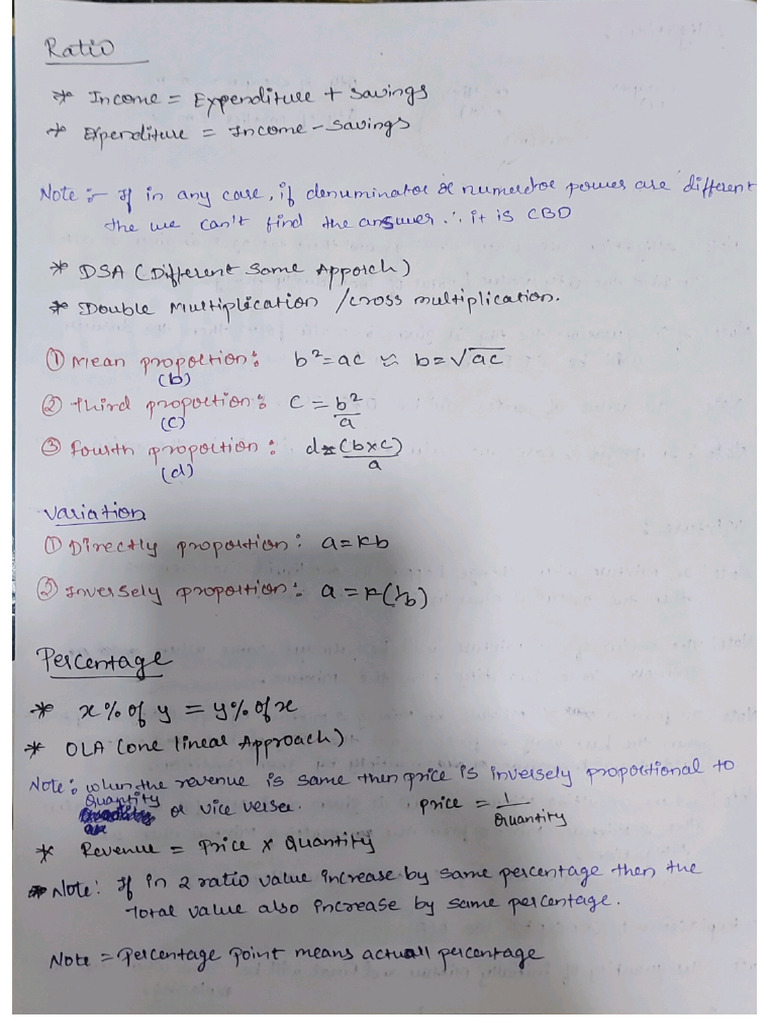 Ratio
* Income = Expenditure + savings
* Expenditure = Income - savings
Note :- If in any case, if denuminator or numerator power are different
the we can't find the answer. ∴ it is CBD
* DSA (Different Same Apporch)
* Double Multiplication / cross multiplication.
① Mean proportion : b² = ac ≈ b = √ac
(b)
② Third proportion : c = b²/a
(c)
③ Fourth proportion : d = (b×c)/a
(d)
Variation
① Directly proportion : a = kb
② Inversely proportion : a = k(1/b)
Percentage
* x% of y = y% of x
* OLA (one lineal Approach)
Note : when the revenue is same then price is inversely proportional to
Quantity or vice versee. Price = 1/Quantity
* Revenue = Price × Quantity
* Note : If in 2 ratio value increase by same percentage then the
Total value also increase by same percentage.
Note = Percentage point means actuall percentage